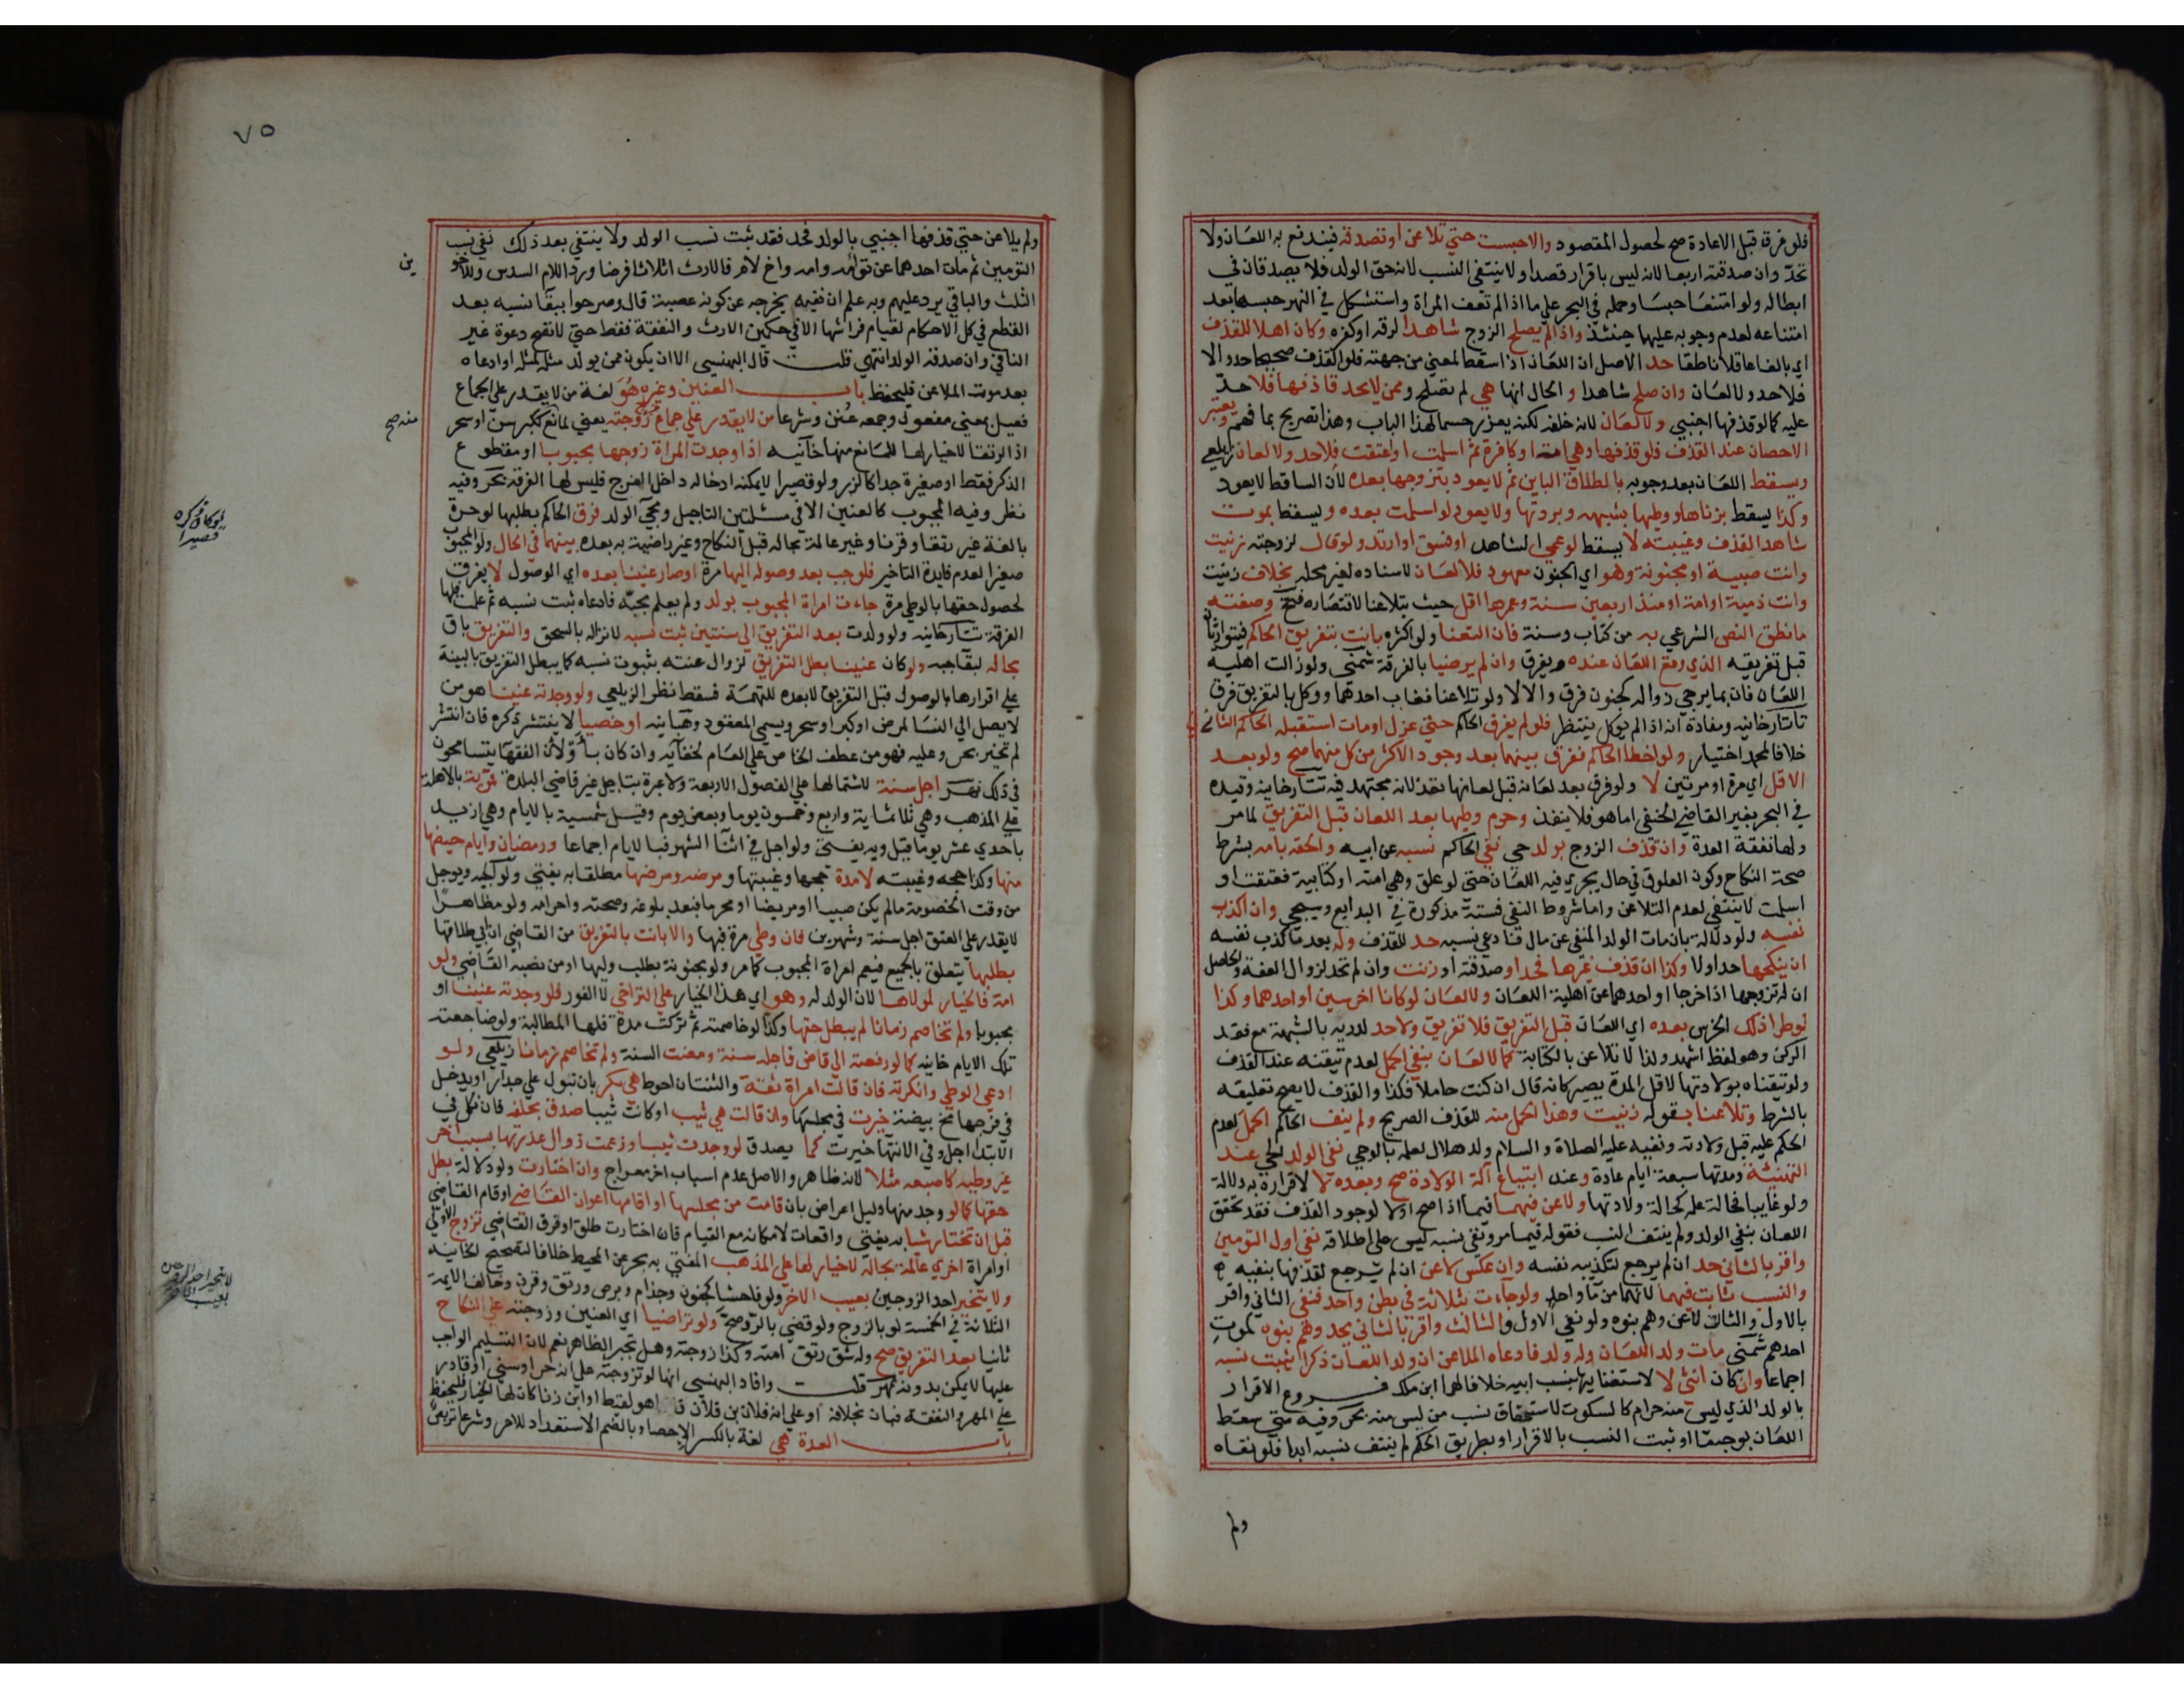 فلو فرق قبل الاعادة صح لحصول المقصود والاحبست حتي تلاعن او تصدقه فيندفع به اللعان ولا
تحد وان صدقته اربعا لانه ليس باقرار قصدا ولا ينتفي النسب لانه حق الولد فلا يصدقان في
ابطاله ولو امتنعا حبسا وحمله في البحر علي ما اذا لم تعف المراة واستشكل في النهر حبسها بعد
امتناعه لعدم وجوبه عليها حينئذ واذا لم يصلح الزوج شاهدا لرقه او كفره وكان اهلا للقذف
اي بالغا عاقلا ناطقا حد الاصل ان اللعان اذا سقط لمعني من جهته فلو القذف صحيحا حد والا
فلا حد ولا لعان وان صلح شاهدا والحال انها هي لم تصلح وممن لا يحد قاذفها فلا حد
عليه كما لو قذفها اجنبي ولا لعان لانه خلفه لكنه يعزر حسما لهذا الباب وهذا تصريح بما فهم ويعتبر
الاحصان عند القذف فلو قذفها وهي امة او كافرة ثم اسلمت او اعتقت فلا حد ولا لعان زيلعي
ويسقط اللعان بعد وجوبه بالطلاق الباين ثم لا يعود بتزوجها بعده لان الساقط لا يعود
وكذا يسقط بزناها ووطيها بشبهه وبردتها ولا يعود لو اسلمت بعده ويسقط بموت
شاهد القذف وغيبته لا يسقط لو عمي الشاهد او فسق او ارتد ولو قال لزوجته زنيت
وانت صبية او مجنونة وهو اي الجنون معهود فلا لعان لاسناده لغير محله بخلاف زنيت
وانت ذمية او امة او منذ اربعين سنة وعمرها اقل حيث يتلاعنا لاقتصاره فتح وصفته
ما نطق النص الشرعي به من كتاب وسنة فان التعنا ولو اكثره بانت بتفريق الحاكم فيتوارثان
قبل تفريقه الذي وقع اللعان عنده ويفرق وان لم يرضيا بالفرقة شمني ولو زالت اهلية
اللعان فان بما يرجي زواله كجنون فرق والا لا ولو تلاعنا فغاب احدهما ووكل بالتفريق فرق
تاتارخانيه ومفاده انه اذا لم يوكل ينتظر فلو لم يفرق الحاكم حتي عزل او مات استقبله الحاكم الثاني
خلافا لمحمد اختيار ولو اخطا الحاكم ففرق بينهما بعد وجود الاكثر من كل منهما صح ولو بعد
الاقل اي مرة او مرتين لا ولو فرق بعد لعانه قبل لعانها نفذ لانه مجتهد فيه تتارخانية وقيده
في البحر بغير القاضي الحنفي اما هو فلا ينفذ وحرم وطيها بعد اللعان قبل التفريق لما مر
ولها نفقة العدة وان قذف الزوج بولد حي نفي الحاكم نسبه عن ابيه والحقه بامه بشرط
صحة النكاح وكون العلوق في حال يجري فيه اللعان حتي لو علق وهي امة او كتابية فعتقت او
اسلمت لا ينتفي لعدم التلاعن واما شروط النفي فستة مذكورة في البدايع وسيجي وان اكذب
نفسه ولو دلالة بان مات الولد المنفي عن مال فادعي نسبه حد للقذف وله بعد ما كذب نفسه
ان ينكحها حد او لا وكذا ان قذف غيرها فحد او صدقته او زنت وان لم تحد لزوال العفة والحاصل
ان له تزوجها اذا خرجا او احدهما عن اهلية اللعان ولا لعان لو كانا اخرسين او احدهما وكذا
لو طرا ذلك الخرس بعده اي اللعان قبل التفريق فلا تفريق ولا حد لدرية بالشبهة مع فقد
الركن وهو لفظ اشهد ولذا لا تلاعن بالكتابة كما لا لعان بنفي الحمل لعدم تيقنه عند القذف
ولو تيقناه بولادتها لاقل المدة يصير كانه قال ان كنت حاملا فكذا والقذف لا يصح تعليقه
بالشرط وتلاعنا بقوله زنيت وهذا الحمل منه للقذف الصريح ولم ينف الحاكم الحمل لعدم
الحكم عليه قبل ولادته ونفيه عليه الصلاة والسلام ولد هلال لعلمه بالوحي نفي الولد الحي عند
التهنئة ومدتها سبعة ايام عادة وعند ابتياع آلة الولادة صح وبعده لا لاقراره به دلالة
ولو غايبا فحالة علمه كحالة ولادتها ولاعن فيهما فيما اذا صح او لا لوجود القذف فقد تحقق
اللعان بنفي الولد ولم ينتف النسب فقوله فيما مر ونفي نسبه ليس علي اطلاقه نفي اول التومين
واقر بالثاني حد ان لم يرجع لتكذيبه نفسه وان عكس لاعن ان لم يرجع لقذفها بنفيه
والنسب ثابت فيهما لانهما من ماء واحد ولو جاءت بثلاثة في بطن واحد فنفي الثاني واقر
بالاول والثالث لاعن وهم بنوه ولو نفي الاول والثالث واقر بالثاني يحد وهم بنوه كموت
احدهم شمني مات ولد اللعان وله ولد فادعاه الملاعن ان ولد اللعان ذكرا يثبت نسبه
اجماعا وان كان انثي لا لاستغنايه بنسب ابيه خلافا لهما ابن ملك فروع الاقرار
بالولد الذي ليس منه حرام كالسكوت لاستحقاق نسب من ليس منه بحر وفيه متي سقط
اللعان بوجه ما او ثبت النسب بالاقرار او بطريق الحكم لم ينتف نسبه ابدا فلو نفاه
ولم
٧٥
ولم يلاعن حتي قذفها اجنبي بالولد فحد فقد ثبت نسب الولد ولا ينتفي بعد ذلك نفي نسب
التومين ثم مات احدهما عن توامه وامه واخ لام فالارث اثلاثا فرضا وردا للام السدس وللاخوين
الثلث والباقي يرد عليهم وبه علم ان نفيه يخرجه عن كونه عصبة قال وصرحوا ببقا نسبه بعد
القطع في كل الاحكام لقيام فراشها الا في حكمين الارث والنفقة فقط حتي لا تصح دعوة غير
النافي وان صدقه الولد انتهي قلت قال البهنسي الا ان يكون ممن يولد مثله لمثله او ادعاه
بعد موت الملاعن فليحفظ باب العنين وغيره هو لغة من لا يقدر علي الجماع
فعيل بمعني مفعول وجمعه عنن وشرعا من لا يقدر علي جماع فرج زوجته يعني لمانع ككبر سن او سحر
منه صح
اذ الرتقا لا خيار لها للمانع منها خانيه اذا وجدت المراة زوجها مجبوبا او مقطوع
الذكر فقط او صغيرة جدا كالزر ولو قصيرا لا يمكنه ادخاله داخل الفرج فليس لها الفرقة بحر وفيه
نظر وفيه المجبوب كالعنين الا في مسئلتين التاجيل ومجيء الولد فرق الحاكم بطلبها لو حرة
بالغة غير رتقا وقرنا وغير عالمة بحاله قبل النكاح وغير راضية به بعده بينهما في الحال ولو المجبوب
صغيرا لعدم فايدة التاخير فلو جب بعد وصوله اليها مرة او صار عنينا بعده اي الوصول لا يفرق
لحصول حقها بالوطي مرة جاءت امراة المجبوب بولد ولم يعلم بجبه فادعاه ثبت نسبه ثم علمت فلها
الفرقة تتارخانيه ولو ولدت بعد التفريق الي سنتين ثبت نسبه لانزاله بالسحق والتفريق باق
بحاله لبقا جبه ولو كان عنينا بطل التفريق لزوال عنته بثبوت نسبه كما يبطل التفريق بالبينة
علي اقرارها بالوصول قبل التفريق لا بعده للتهمة فسقط نظر الزيلعي ولو وجدته عنينا هو من
لا يصل الي النسا لمرض او كبر او سحر ويسمي المعقود وهبانيه او خصيا لا ينتشر ذكره فان انتشر
لم تخير بحر وعليه فهو من عطف الخاص علي العام لخفايه وان كان باو لان الفقها يتسامحون
في ذلك نهر اجل سنة لاشتمالها علي الفصول الاربعة ولا عبرة بتاجيل غير قاضي البلدة قمرية بالاهلة
علي المذهب وهي ثلاثماية واربع وخمسون يوما وبعض يوم وقيل شمسية بالايام وهي ازيد
باحدي عشر يوما قيل وبه يفتي ولو اجل في اثنا الشهر فبالايام اجماعا ورمضان وايام حيضها
منها وكذا حجه وغيبته لا مدة حجها وغيبتها ومرضه ومرضها مطلقا به يفتي ولوالجيه ويوجل
من وقت الخصومة ما لم يكن صبيا او مريضا او محرما فبعد بلوغه وصحته واحرامه ولو مظاهرا
لا يقدر علي العتق اجل سنة وشهرين فان وطي مرة فيها والا بانت بالتفريق من القاضي ان ابي طلاقها
بطلبها يتعلق بالجميع فيعم امراة المجبوب كما مر ولو مجنونة بطلب وليها او من نصبه القاضي ولو
امة فالخيار لمولاها لان الولد له وهو اي هذا الخيار علي التراخي لا الفور فلو وجدته عنينا او
مجبوبا ولم تخاصم زمانا لم يبطل حقها وكذا لو خاصمته ثم تركت مدة فلها المطالبة ولو ضاجعته
تلك الايام خانيه كما لو رفعته الي قاض فاجله سنة ومضت السنة ولم تخاصم زمانا زيلعي ولو
ادعي الوطي وانكرته فان قالت امراة ثقة والثنتان احوط هي بكر بان تبول علي جدار او يدخل
في فرجها مح بيضة خيرت في مجلسها وان قالت هي ثيب او كانت ثيبا صدق بحلفه فان نكل في
الابتدا اجل وفي الانتها خيرت كما يصدق لو وجدت ثيبا وزعمت زوال عذرتها بسبب اخر
غير وطيه كاصبعه مثلا لانه ظاهر والاصل عدم اسباب اخر معراج وان اختارت ولو دلالة بطل
حقها كما لو وجد منها دليل اعراض بان قامت من مجلسها او اقامها اعوان القاضي او قام القاضي
قبل ان تختار شيا به يفتي واقعات لامكانه مع القيام فان اختارت طلق او فرق القاضي تزوج الاولي
او امراة اخري عالمة بحاله لا خيار لها علي المذهب المفتي به بحر عن المحيط خلافا لتصحيح الخانيه
ولا يتخير احد الزوجين بعيب الاخر ولو فاحشا كجنون وجذام وبرص ورتق وقرن وخالف الايمة
الثلاثة في الخمسة لو بالزوج ولو قضي بالرد صح ولو تراضيا اي العنين وزوجته علي النكاح
ثانيا بعد التفريق صح وله شق رتق امته وكذا زوجته وهل تجبر الظاهر نعم لان التسليم الواجب
عليها لا يمكن بدونه نهر قلت وافاد البهنسي انها لو تزوجته علي انه حر او سني او قادر
علي المهر والنفقة فبان بخلافه او علي انه فلان بن فلان فاذا هو لقيط او ابن زنا كان لها الخيار فليحفظ
باب العدة هي لغة بالكسر الاحصا وبالضم الاستعداد للامر وشرعا تربص